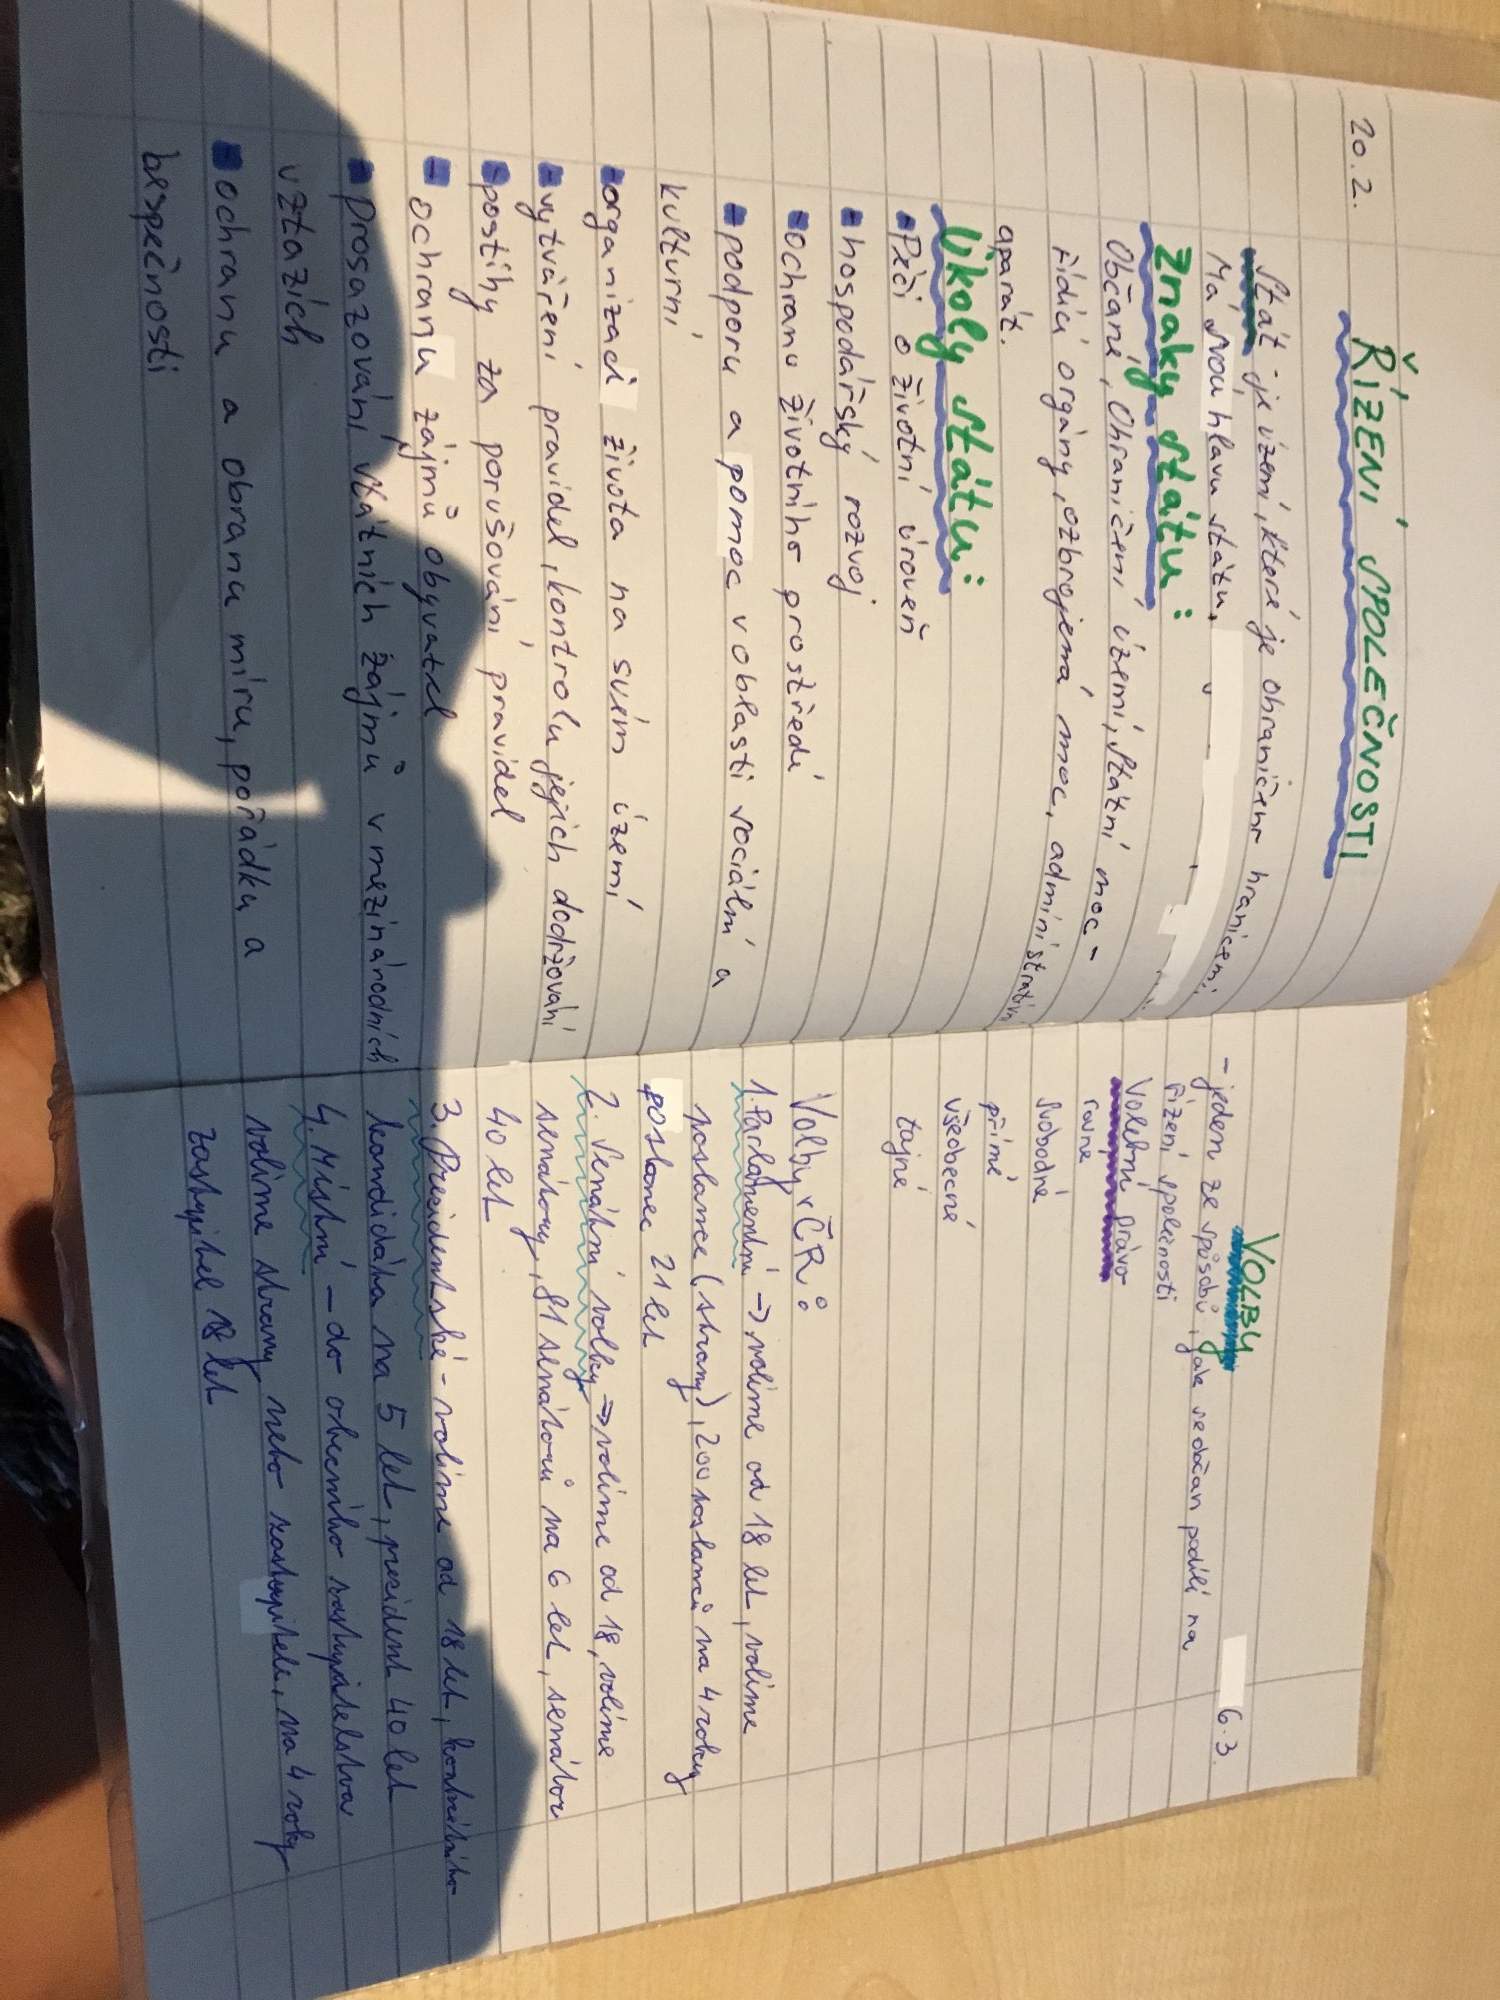 20.2.
ŘÍZENÍ SPOLEČNOSTI
Stát - je územní, které je ohraničeno hranicemi.
Má svou hlavu státu.
Znaky státu:
Občané, Ohraničení území, státní moc -
řídící orgány, ozbrojená moc, administrativní
aparát.
Úkoly státu:
- Péči o životní úroveň
- hospodářský rozvoj
- ochranu životního prostředí
- podporu a pomoc v oblasti sociální a
kulturní
- organizaci života na svém území
- vytváření pravidel, kontrolu jejich dodržování
- postihy za porušování pravidel
- ochranu zájmů obyvatel
- prosazování státních zájmů v mezinárodních
vztazích
- ochranu a obranu míru, pořádku a
bespečnosti
6.3.
VOLBY
- jeden ze způsobů, jak se občan podílí na
řízení společnosti
Volební právo
rovné
svobodné
přímé
všeobecné
tajné
Volby v ČR:
1. Parlamentní → volíme od 18 let, volíme
poslance (strany), 200 poslanců na 4 roky
poslanec 21 let
2. Senátní volby → volíme od 18, volíme
senátory, 81 senátorů na 6 let, senátor
40 let
3. Presidentské - volíme od 18 let, konkrétního
kandidáta na 5 let, president 40 let
4. Místní - do obecního zastupitelstva
volíme strany nebo zastupitele, na 4 roky
zastupitel 18 let